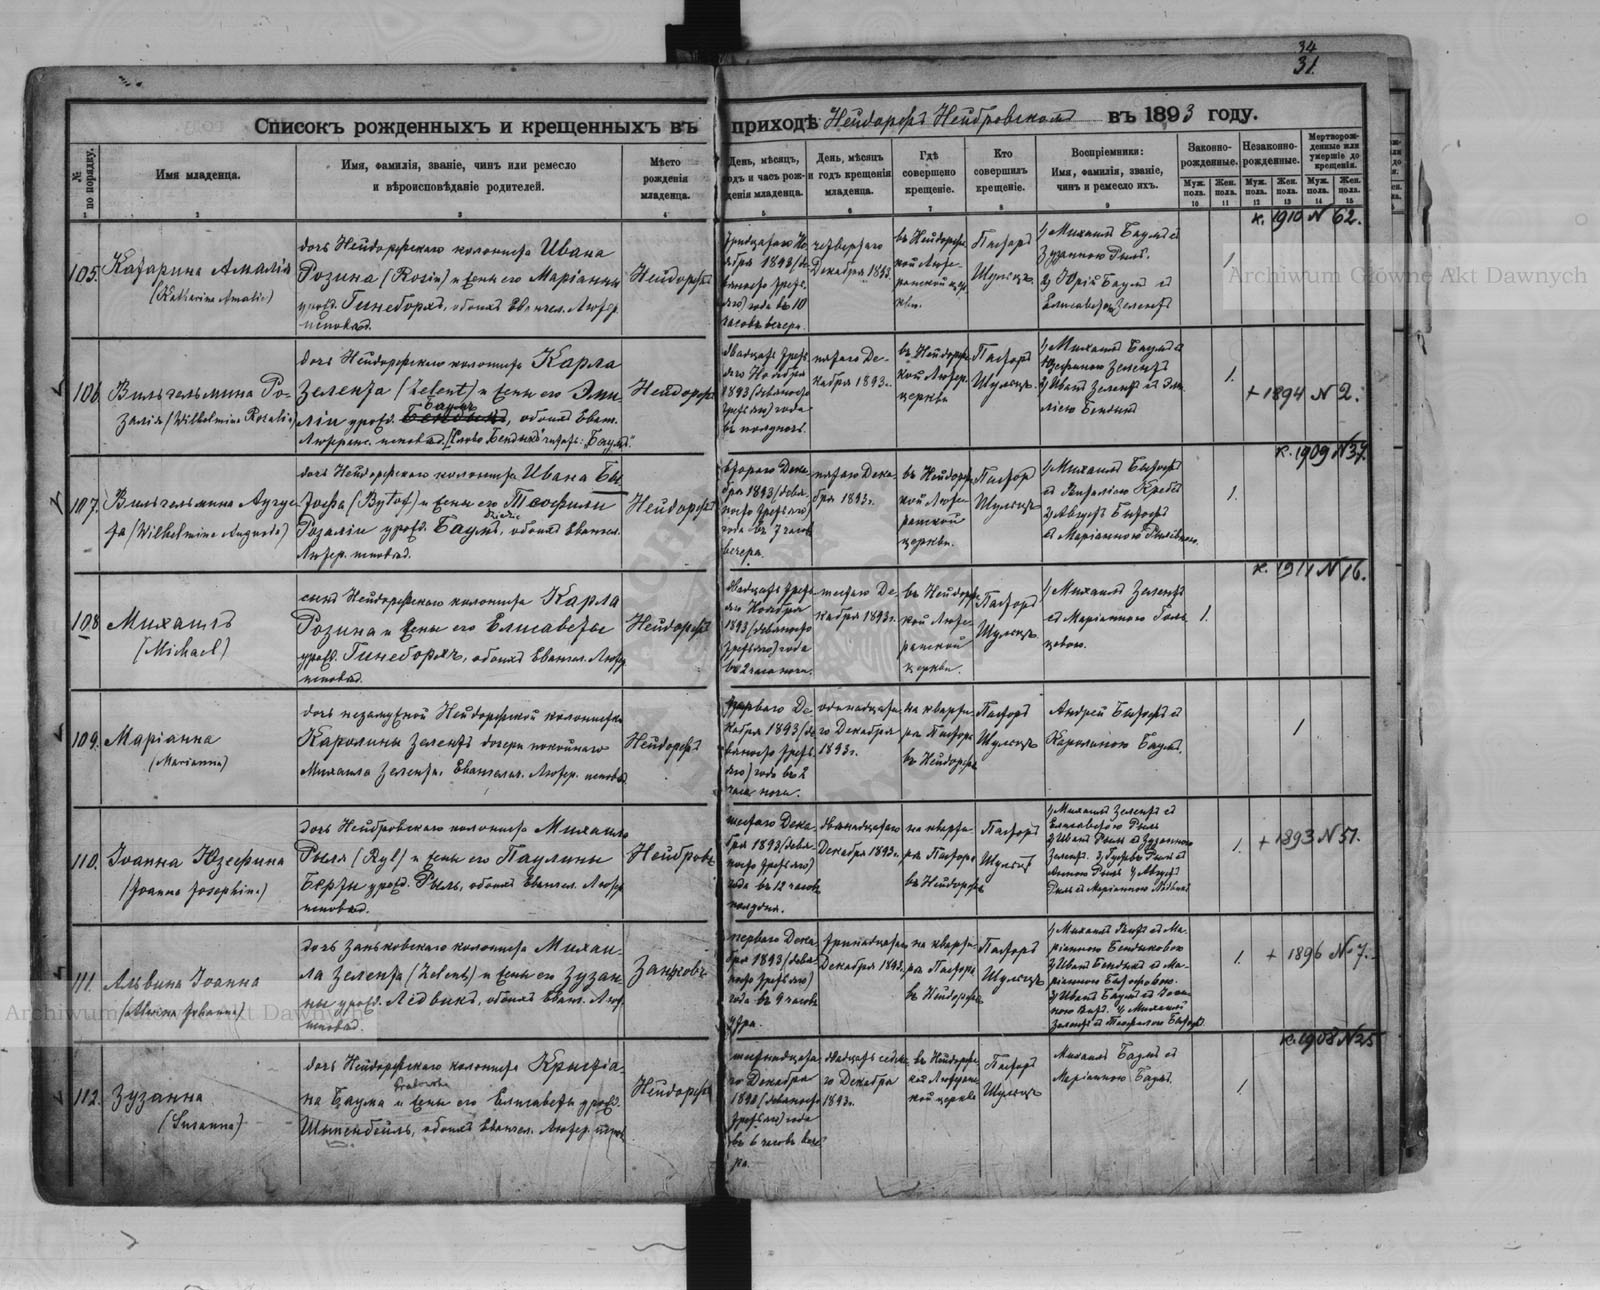 34
31.
Списокъ рожденныхъ и крещенныхъ въ приходѣ Нейдорфъ Нейбровскомъ въ 1893 году.
№ по порядку.
Имя младенца.
Имя, фамилія, званіе, чинъ или ремесло
и вѣроисповѣданіе родителей.
Мѣсто
рожденія
младенца.
День, мѣсяцъ,
годъ и часъ рож-
денія младенца.
День, мѣсяцъ
и годъ крещенія
младенца.
Гдѣ
совершено
крещеніе.
Кто
совершилъ
крещеніе.
Воспріемники:
Имя, фамилія, званіе,
чинъ и ремесло ихъ.
Законно-
рожденные.
Незаконно-
рожденные.
Мертворож-
денные или
умершіе до
крещенія.
Муж. пола.
Жен. пола.
Муж. пола.
Жен. пола.
Муж. пола.
Жен. пола.
1 2 3 4 5 6 7 8 9 10 11 12 13 14 15
к. 1910 N 62.
105.
Катарина Амалія
(Katharina Amalie)
дочь Нейдорфскаго колониста Ивана
Розина (Rosin) и жены его Маріанны
урожд. Гинеборхъ, обоихъ Евангел. Лютер.
исповѣд.
Нейдорфъ
тридцатаго Но-
ября 1893 (де-
вяносто треть-
яго) года въ 10
часовъ вечера.
четвертаго
Декабря 1893.
въ Нейдорфс-
кой Люте-
ранской цер-
кви.
Пасторъ
Шульцъ
1) Михаилъ Баумъ и
Зузанною Рыль.
2) Юрій Баумъ и
Елисаветою Зелентъ
1.
106.
Вильгельмина Ро-
залія (Wilhelmine Rosalie)
дочь Нейдорфскаго колониста Карла
Зелента (Zelent) и жены его Эми-
ліи урожд. Баумъ, обоихъ Еванг.
Лютеранс. исповѣд. (Слово Бендыкъ читать: Баумъ."
Нейдорфъ
двадцать треть-
яго Ноября
1893 (девяносто
третьяго) года
въ полдень.
пятаго Де-
кабря 1893 г.
въ Нейдорфс-
кой Лютер.
церкви
Пасторъ
Шульцъ
1) Михаилъ Баумъ и
Юзефиною Зелентъ
2) Иванъ Зелентъ и Эми-
ліею Бендыкъ
1.
+ 1894 N 2.
к. 1909 N 37.
107.
Вильгельмина Аугус-
та (Wilhelmine Auguste)
дочь Нейдорфскаго колониста Ивана Бы-
това (Bytof) и жены его Теофили
Розаліи урожд. Баумъ, обоихъ Евангел.
Лютер. исповѣд.
Нейдорфъ
второго Дека-
бря 1893 (девя-
носто третьяго)
года въ 7 часовъ
вечера.
пятаго Дека-
бря 1893 г.
въ Нейдорфс-
кой Люте-
ранской
церкви.
Пасторъ
Шульцъ
1) Михаилъ Бытофъ
2) Августъ Бытофъ
1.
к. 1911 N 16.
108
Михаилъ
(Michael)
сынъ Нейдорфскаго колониста Карла
Розина и жены его Елисаветы
урожд. Гинеборхъ, обоихъ Евангел. Лютер.
исповѣд.
Нейдорфъ
двадцать треть-
яго Ноября
1893 (девяносто
третьяго) года
въ 2 часа ночи.
шестаго Де-
кабря 1893 г.
въ Нейдорфс-
кой Люте-
ранской
церкви.
Пасторъ
Шульцъ
1) Михаилъ Зелентъ
и Маріанною
1.
109.
Маріанна
(Marianna)
дочь незамужной Нейдорфской колонистки
Каролины Зелентъ дочери покойнаго
Михаила Зелента, Евангелич. Лютер. исповѣд.
Нейдорфъ
перваго Де-
кабря 1893 (де-
вяносто треть-
яго) года въ 2
часа ночи.
одинадцата-
го Декабря
1893 г.
на кварти-
рѣ Пастора
въ Нейдорфѣ
Пасторъ
Шульцъ
Андрей Бытофъ и
Каролиною Баумъ.
1
110.
Іоанна Юзефина
(Joanna Josephine)
дочь Нейбровскаго колониста Михаила
Рыля (Ryl) и жены его Паулины
Берты урожд. Рыль, обоихъ Евангел. Лютер.
исповѣд.
Нейбровъ
шестаго Дека-
бря 1893 (девя-
носто третьяго)
года въ 12 часовъ
полдня.
двѣнадцатаго
Декабря 1893 г.
на кварти-
рѣ Пастора
въ Нейдорфѣ
Пасторъ
Шульцъ
1) Михаилъ Зелентъ и
Елисаветою Рыль
2) Иванъ Рыль и Зузанною
Зелентъ.
1.
+ 1893 N 51.
111.
Альвина Іоанна
(Alwine Johanne)
дочь Заньковскаго колониста Михаи-
ла Зелента (Zelent) и жены его Зузан-
ны урожд. Ледвикъ, обоихъ Еванг. Лют.
исповѣд.
Заньковъ
перваго Дека-
бря 1893 (девя-
носто третьяго)
года въ 9 часовъ
утра.
тринадцатаго
Декабря 1893.
на кварти-
рѣ Пастора
въ Нейдорфѣ
Пасторъ
Шульцъ
2) Иванъ Бендыкъ и Ма-
ріанною Бытофовою.
3) Иванъ Баумъ и
4) Михаилъ
Зелентъ и Теофилою Бытофъ
1.
+ 1896 N 7.
к. 1908 N 25
112.
Зузанна
(Susanna)
дочь Нейдорфскаго колониста Крыстіа-
на Баума и жены его Елисаветы урожд.
Шынбейль, обоихъ Евангел. Лютер. испов.
Нейдорфъ
шестнадцата-
го Декабря
1893 (девяносто
третьяго) года
въ 6 часовъ вече-
ра.
двадцать седьма-
го Декабря
1893 г.
въ Нейдорфс-
кой Лютеран-
ской церкви
Пасторъ
Шульцъ
Михаилъ Баумъ и
Маріанною Баумъ.
1.
Archiwum Główne Akt Dawnych
Archiwum Główne Akt Dawnych